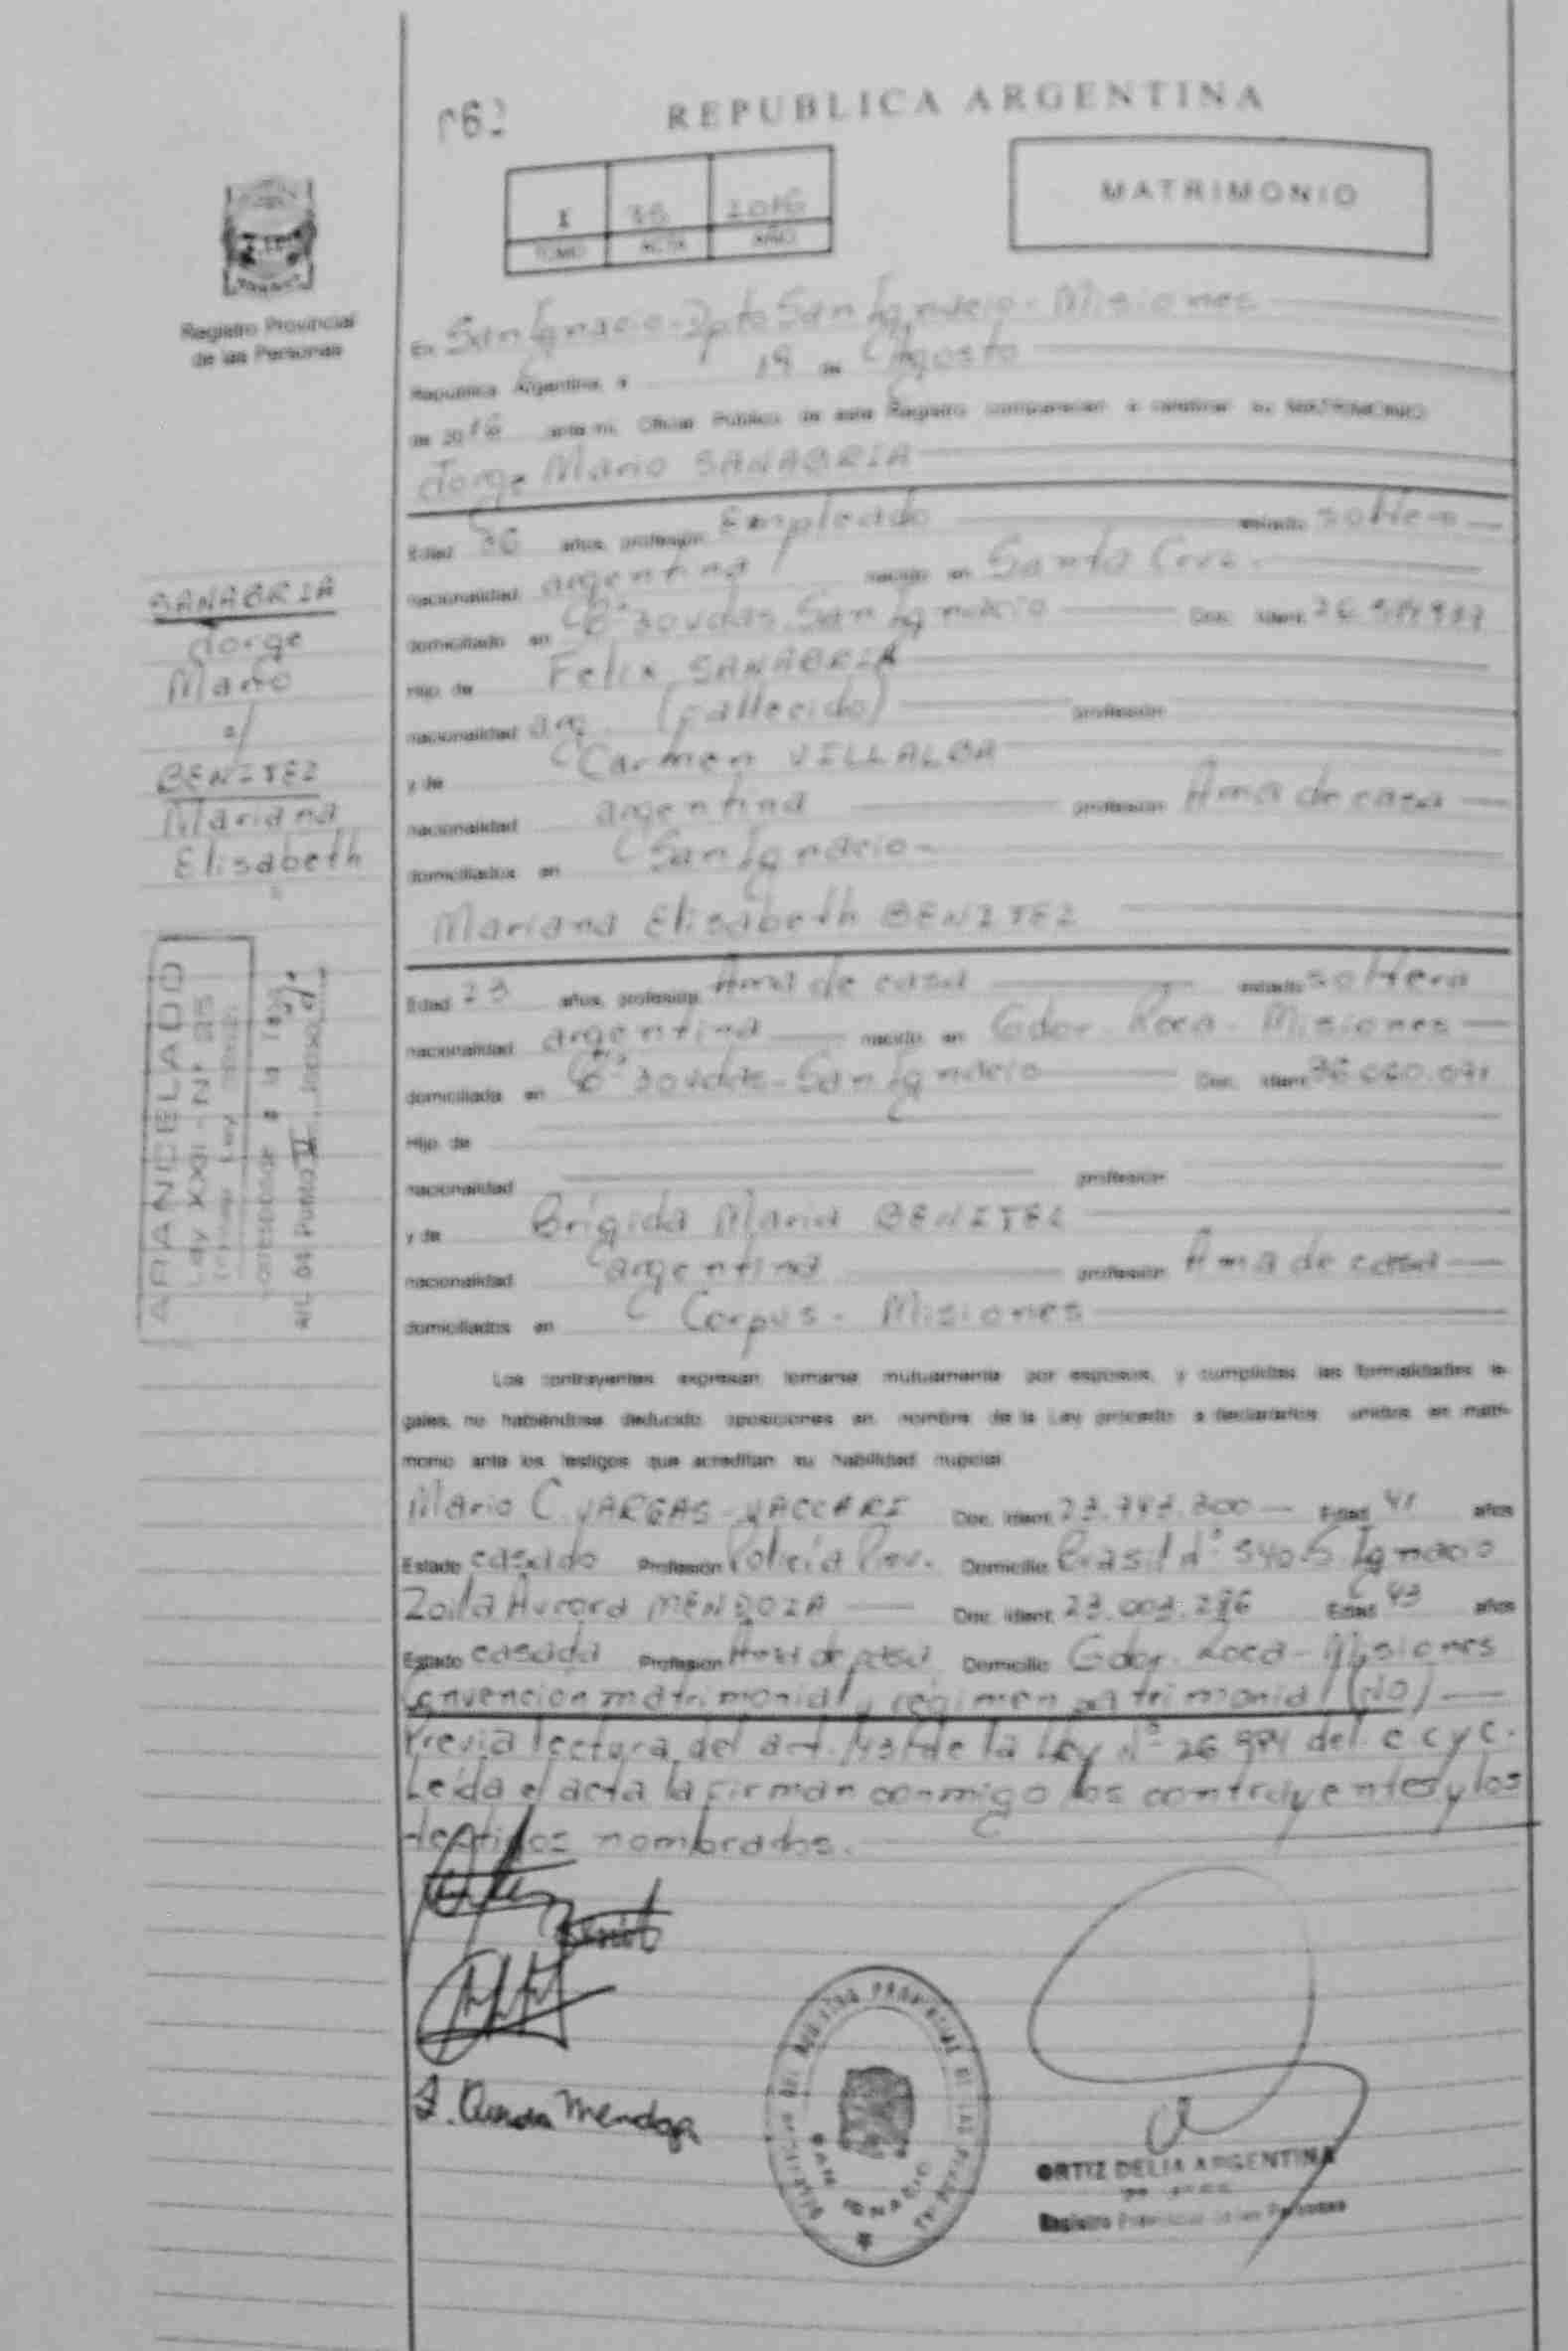 REPUBLICA ARGENTINA
MATRIMONIO
I 2016
TOMO ACTA AÑO
Registro Provincial
de las Personas
En San Ignacio - Dpto San Ignacio - Misiones
Republica Argentina, a 19 de Agosto
de 2016 ante mi, Oficial Público de este Registro comparecen a celebrar su MATRIMONIO
Jorge Mario SANABRIA
Edad 36 años, profesión Empleado estado soltero
nacionalidad argentina nacido en Santa Cruz.
domiciliado en Bº 30 vdas. San Ignacio Doc. Ident.
Hijo de Felix SANABRIA
nacionalidad arg. (fallecido) profesión
y de Carmen VILLALBA
nacionalidad argentina profesión Ama de casa
domiciliados en San Ignacio
SANABRIA
Jorge
Mario
c/
BENITEZ
Mariana
Elisabeth
Mariana Elisabeth BENITEZ
Edad 23 años, profesión Ama de casa estado soltera
nacionalidad argentina nacido en Gdor. Roca - Misiones
domiciliada en Bº 30 vdas - San Ignacio Doc. Ident.
Hijo de
nacionalidad profesión
y de Brígida Maria BENITEZ
nacionalidad argentina profesión Ama de casa
domiciliados en Corpus - Misiones
ARANCELADO
Ley XXII - Nº 25
Los contrayentes expresan tomarse mutuamente por esposos, y cumplidas las formalidades le-
gales, no habiéndose deducido oposiciones en nombre de la Ley procedo a declararlos unidos en matri-
monio ante los testigos que acreditan su habilidad nupcial
Mario C. VARGAS - VACCARI Doc. Ident. 23.743.300 Edad 41 años
Estado casado Profesión Policía Prov. Domicilio Brasil Nº 540 S. Ignacio
Zoila Aurora MENDOZA Doc. Ident. 23.003.286 Edad 43 años
Estado casada Profesión Ama de casa Domicilio Gdor. Roca - Misiones
Convencion matrimonial y régimen patrimonial (NO)
Previa lectura del art. 431 de la Ley Nº 26.994 del C C y C.
Leída el acta la firman conmigo los contrayentes y los
testigos nombrados.
Mendoza
SAN IGNACIO
ORTIZ DELIA ARGENTINA
Registro Provincial de las Personas